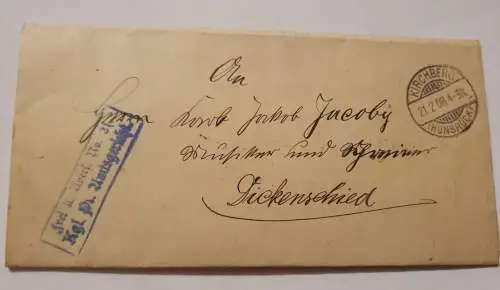 An
Herrn Karb Jakob Jacoby
Musiker und Schreiner
Dickenschied
KIRCHBERG
21.2.08.4-5N.
(HUNSRÜCK)
Frei lt. Avers. No. 21
Kgl. Pr. Amtsgericht